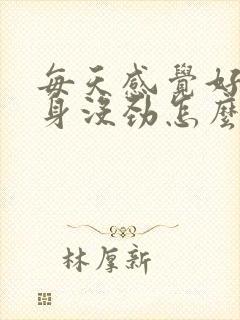 每天感覺好
身沒勁怎麼
林厚新